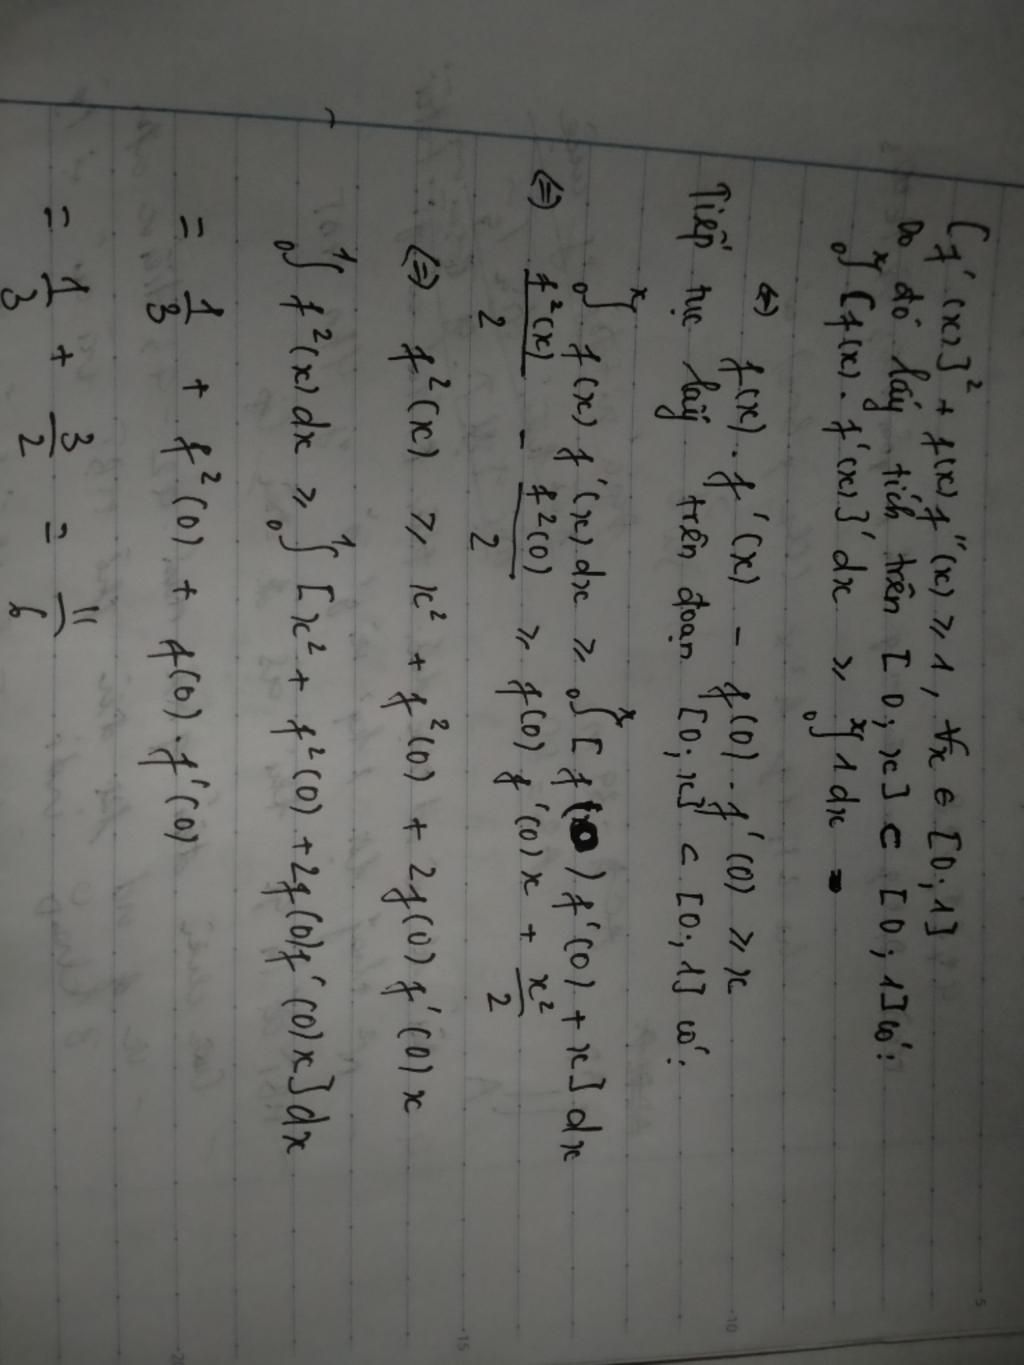 [f'(x)]² + f(x) f''(x) ≥ 1, ∀x ∈ [0;1]
Do đó lấy tích trên [0;x] ⊂ [0;1] có:
₀∫ˣ [f(x).f'(x)]' dx ≥ ₀∫ˣ 1 dx
⇔ f(x).f'(x) - f(0).f'(0) ≥ x
Tiếp tục lấy trên đoạn [0;x] ⊂ [0;1] có:
₀∫ˣ f(x) f'(x) dx ≥ ₀∫ˣ [f(0) f'(0) + x] dx
⇔ f²(x)/2 - f²(0)/2 ≥ f(0) f'(0)x + x²/2
⇔ f²(x) ≥ x² + f²(0) + 2f(0) f'(0)x
₀∫¹ f²(x) dx ≥ ₀∫¹ [x² + f²(0) + 2f(0)f'(0)x] dx
= 1/3 + f²(0) + f(0).f'(0)
= 1/3 + 3/2 = 11/6
5
10
15
20